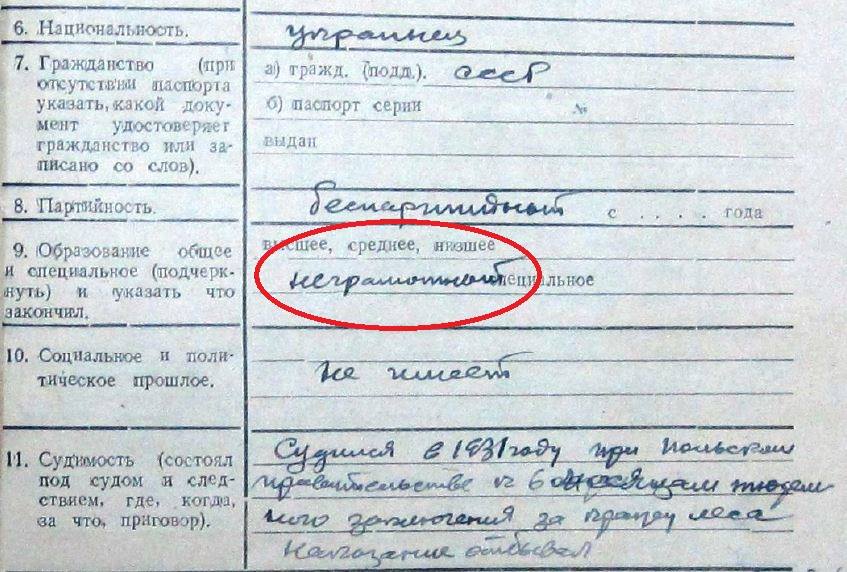 6. Национальность. украинец
7. Гражданство (при
отсутствии паспорта
указать, какой доку-
мент удостоверяет
гражданство или за-
писано со слов).
а) гражд. (подд.). СССР
б) паспорт серии №
выдан
8. Партийность. беспартийный с . . . . года
9. Образование общее
и специальное (подчерк-
нуть) и указать что
закончил.
высшее, среднее, низшее
неграмотный специальное
10. Социальное и поли-
тическое прошлое.
не имеет
11. Судимость (состоял
под судом и след-
ствием, где, когда,
за что, приговор).
Судился в 1931 году при Польском
правительстве к 6 тюрем
ного заключения за кражу леса
Наказание отбывал